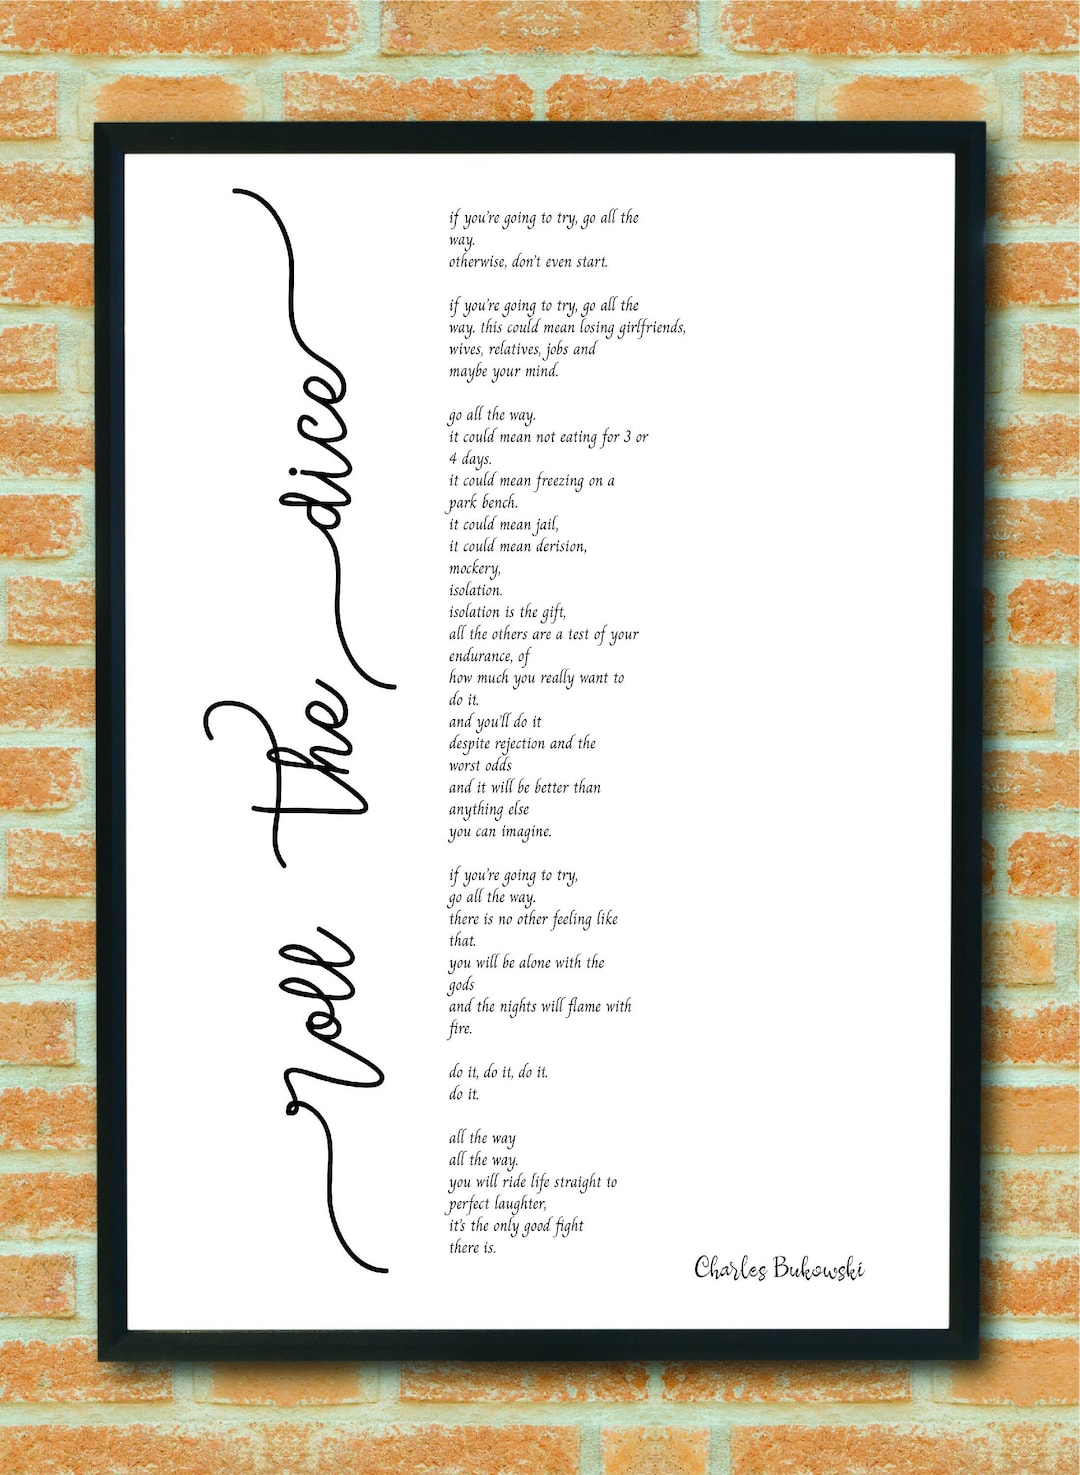 Roll the dice
if you're going to try, go all the
way.
otherwise, don't even start.
if you're going to try, go all the
way. this could mean losing girlfriends,
wives, relatives, jobs and
maybe your mind.
go all the way.
it could mean not eating for 3 or
4 days.
it could mean freezing on a
park bench.
it could mean jail,
it could mean derision,
mockery,
isolation.
isolation is the gift,
all the others are a test of your
endurance, of
how much you really want to
do it.
and you'll do it
despite rejection and the
worst odds
and it will be better than
anything else
you can imagine.
if you're going to try,
go all the way.
there is no other feeling like
that.
you will be alone with the
gods
and the nights will flame with
fire.
do it, do it, do it.
do it.
all the way
all the way.
you will ride life straight to
perfect laughter,
it's the only good fight
there is.
Charles Bukowski